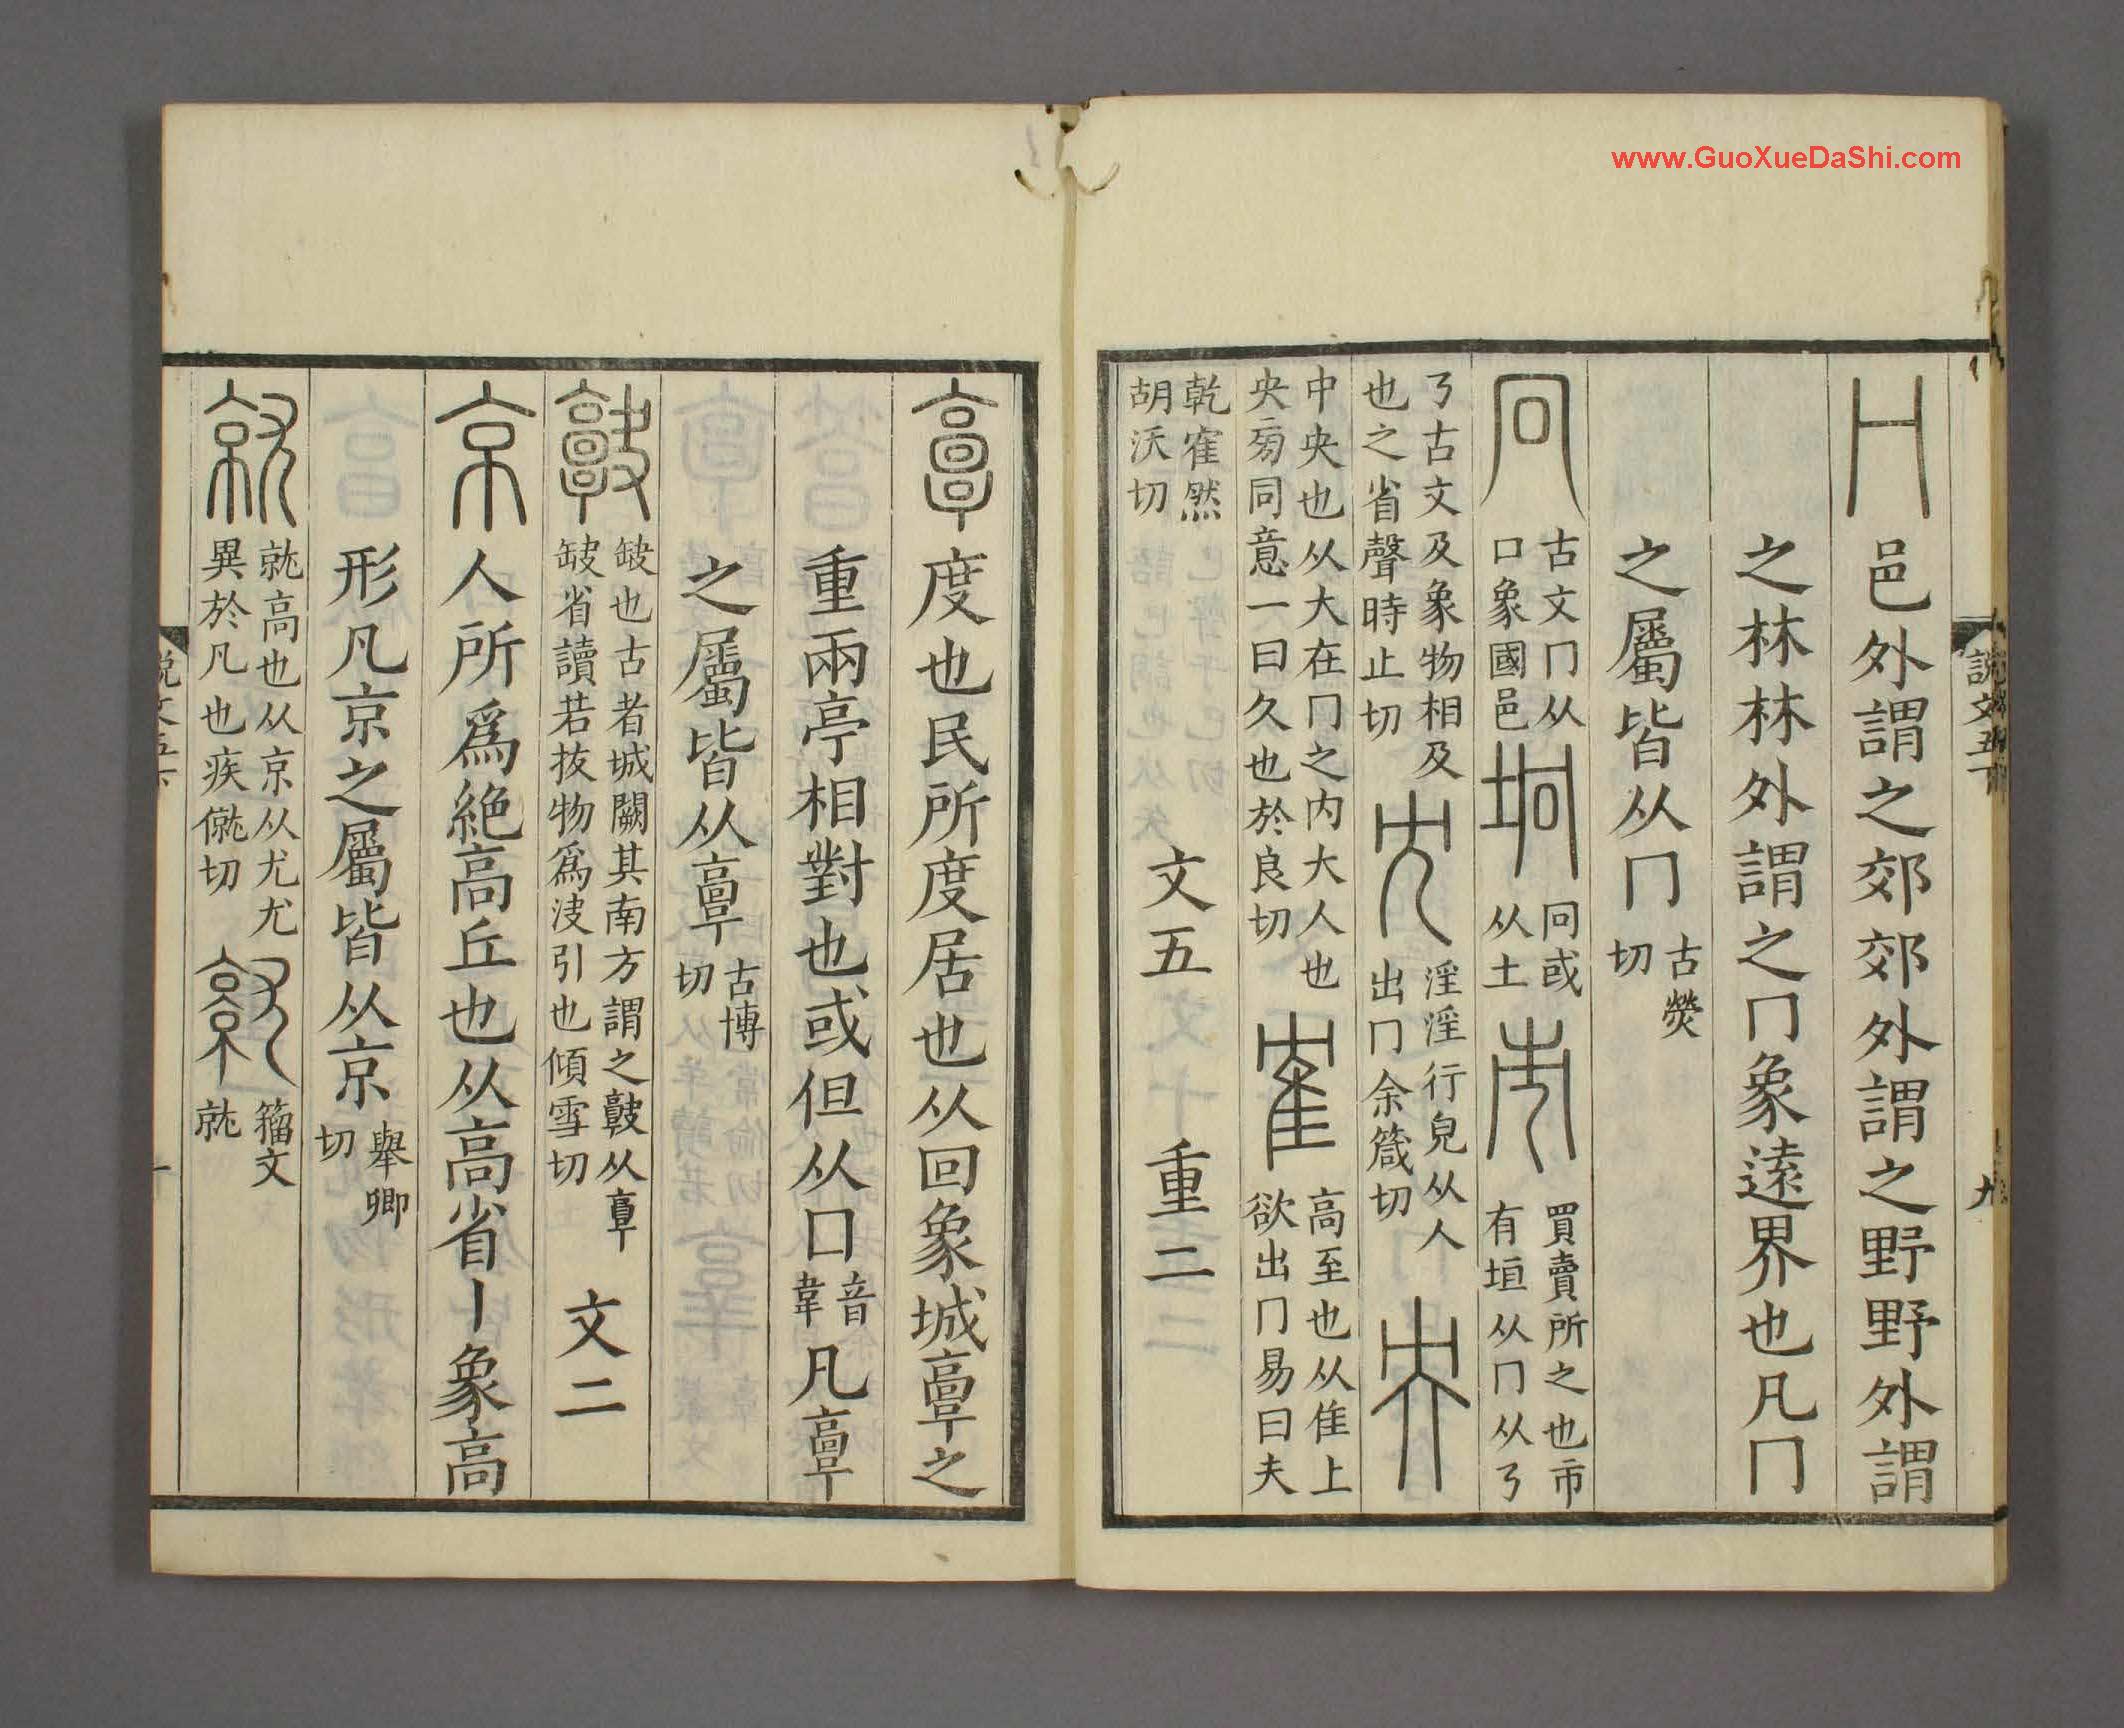 www.GuoXueDaShi.com
說文五下
九
冂邑外謂之郊郊外謂之野野外謂
之林林外謂之冂象遠界也凡冂
之屬皆从冂古熒切
冋古文冂从口象國邑坰冋或从土市買賣所之也市有垣从冂从乁
乁古文及象物相及也之省聲時止切冘淫淫行皃从人出冂余箴切央
中央也从大在冂之内大人也央㫄同意一曰久也於良切隺高至也从隹上欲出冂易曰夫
乾隺然胡沃切 文五 重二
𩫖度也民所度居也从回象城𩫖之
重兩亭相對也或但从口音韋凡𩫖
之屬皆从𩫖古博切
𩫨缺也古者城闕其南方謂之𩫨从𩫖缺省讀若拔物爲決引也傾雪切 文二
京人所爲絶高丘也从高省丨象高
形凡京之屬皆从京舉卿切
就就高也从京从尤尤異於凡也疾僦切𡰜籒文就
說文五下